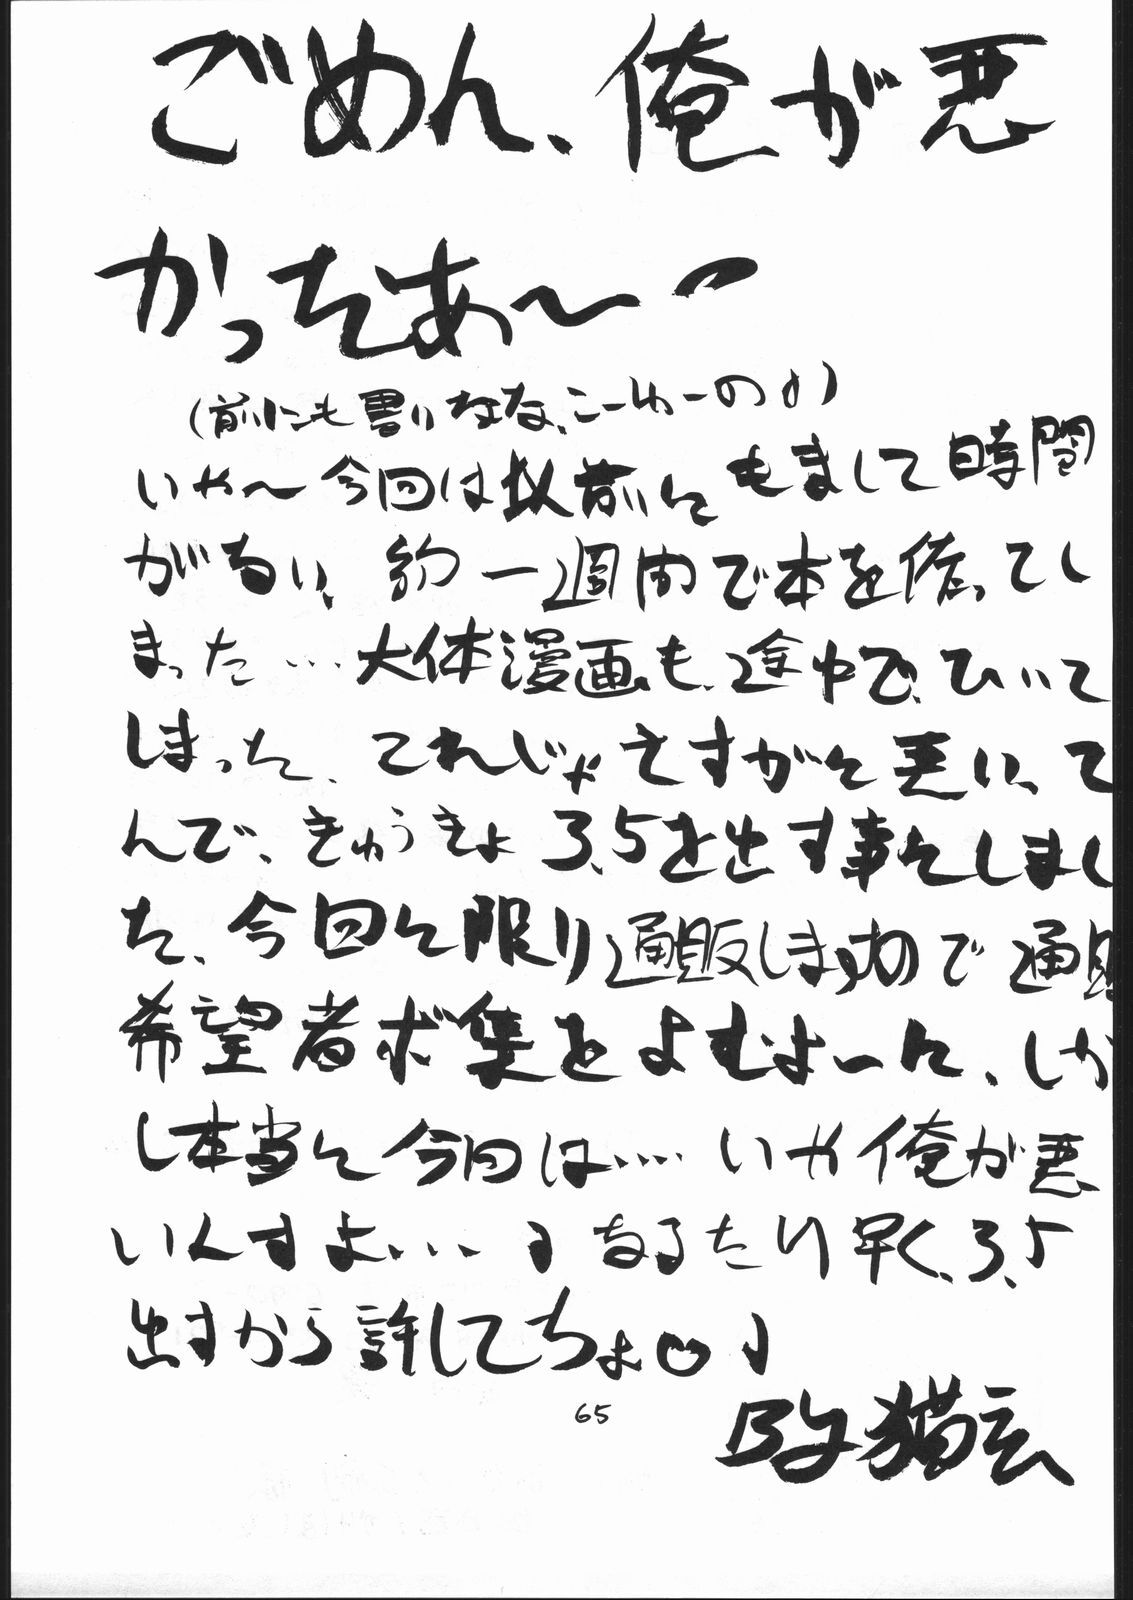 ごめん、俺が悪
かったあ〜
(前にも書いたな、こーゆーの♪)
いや〜今回は以前にもまして時間
がない、約一週間で本を作ってし
まった…大体漫画も、途中で、ひいて
しまった、これじゃさすがに悪い、て
んで、きゅうきょ3.5を出す事にしまし
た、今回に限り通販しますので通販
希望者ボ集をよむよーに、しか
し本当に今回は…いや俺が悪
いんすよ…♪なるたり早く、3.5
出すから許してちょ♡♪
65
By猫玄